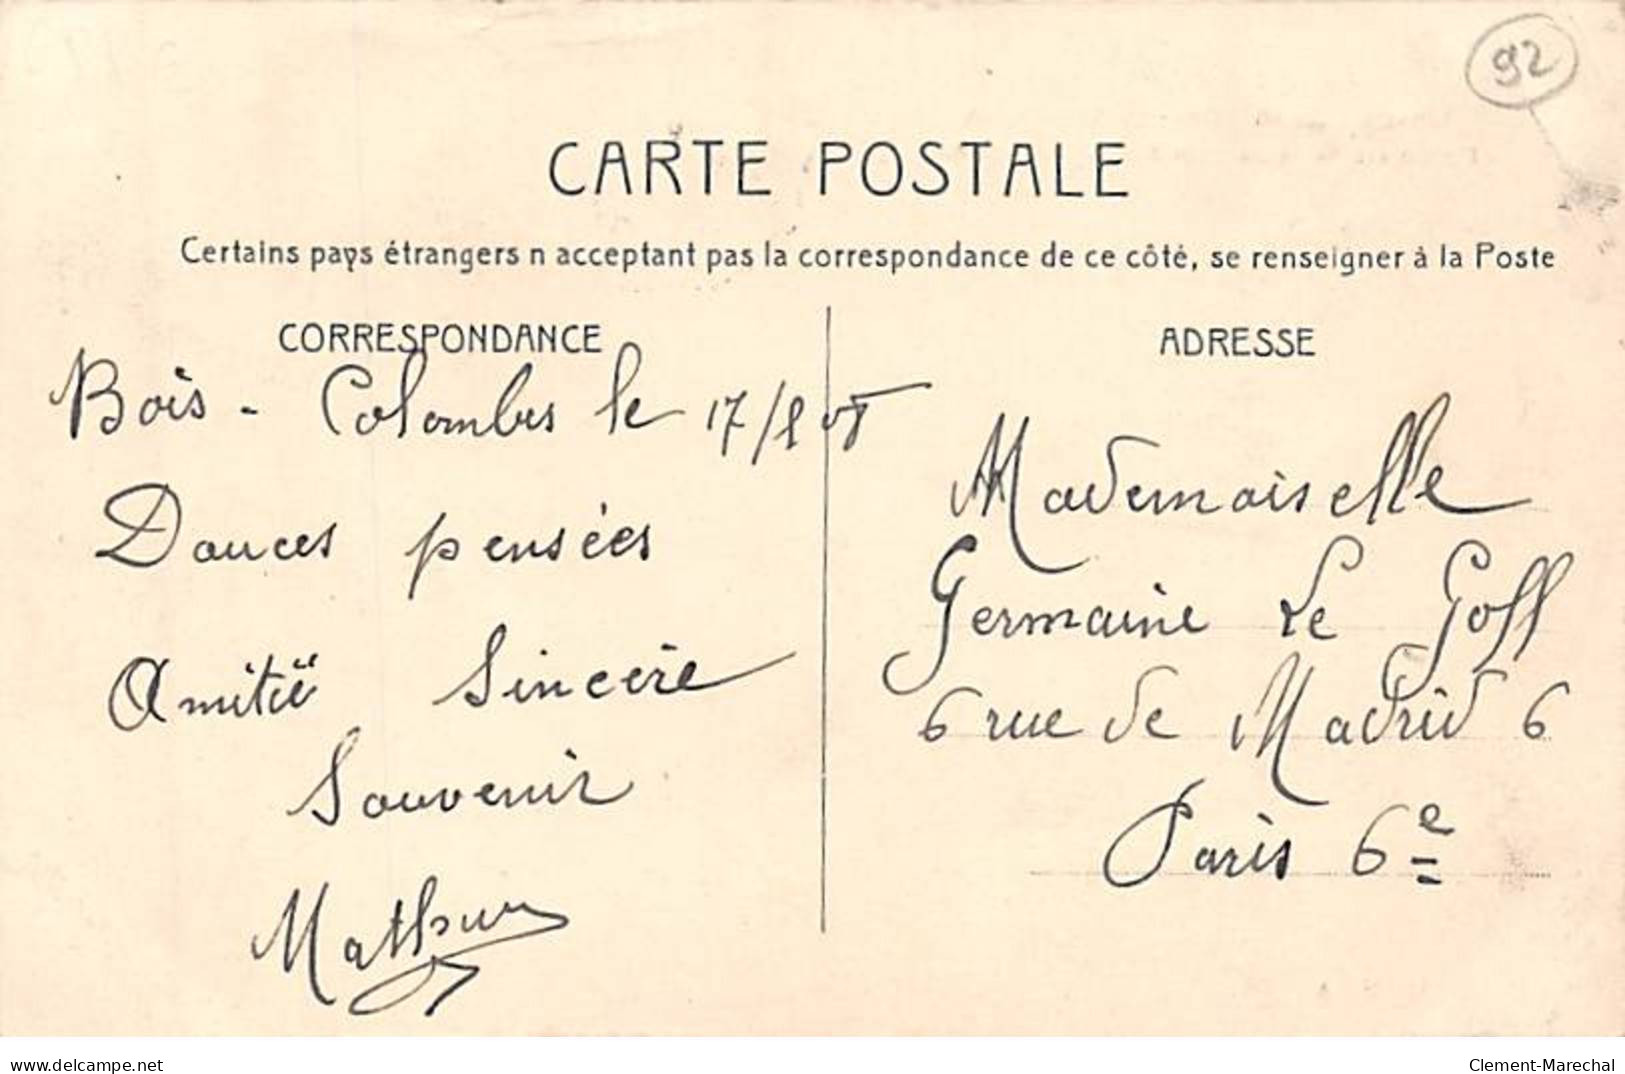 92
CARTE POSTALE
Certains pays étrangers n acceptant pas la correspondance de ce côté, se renseigner à la Poste
CORRESPONDANCE
Bois - Colombes le 17/8
Douces pensées
Amitié Sincère
Souvenir
ADRESSE
Mademoiselle
Germaine Le Goff
6 rue de Madrid 6
Paris 6e
delcampe.net
Clement-Marechal